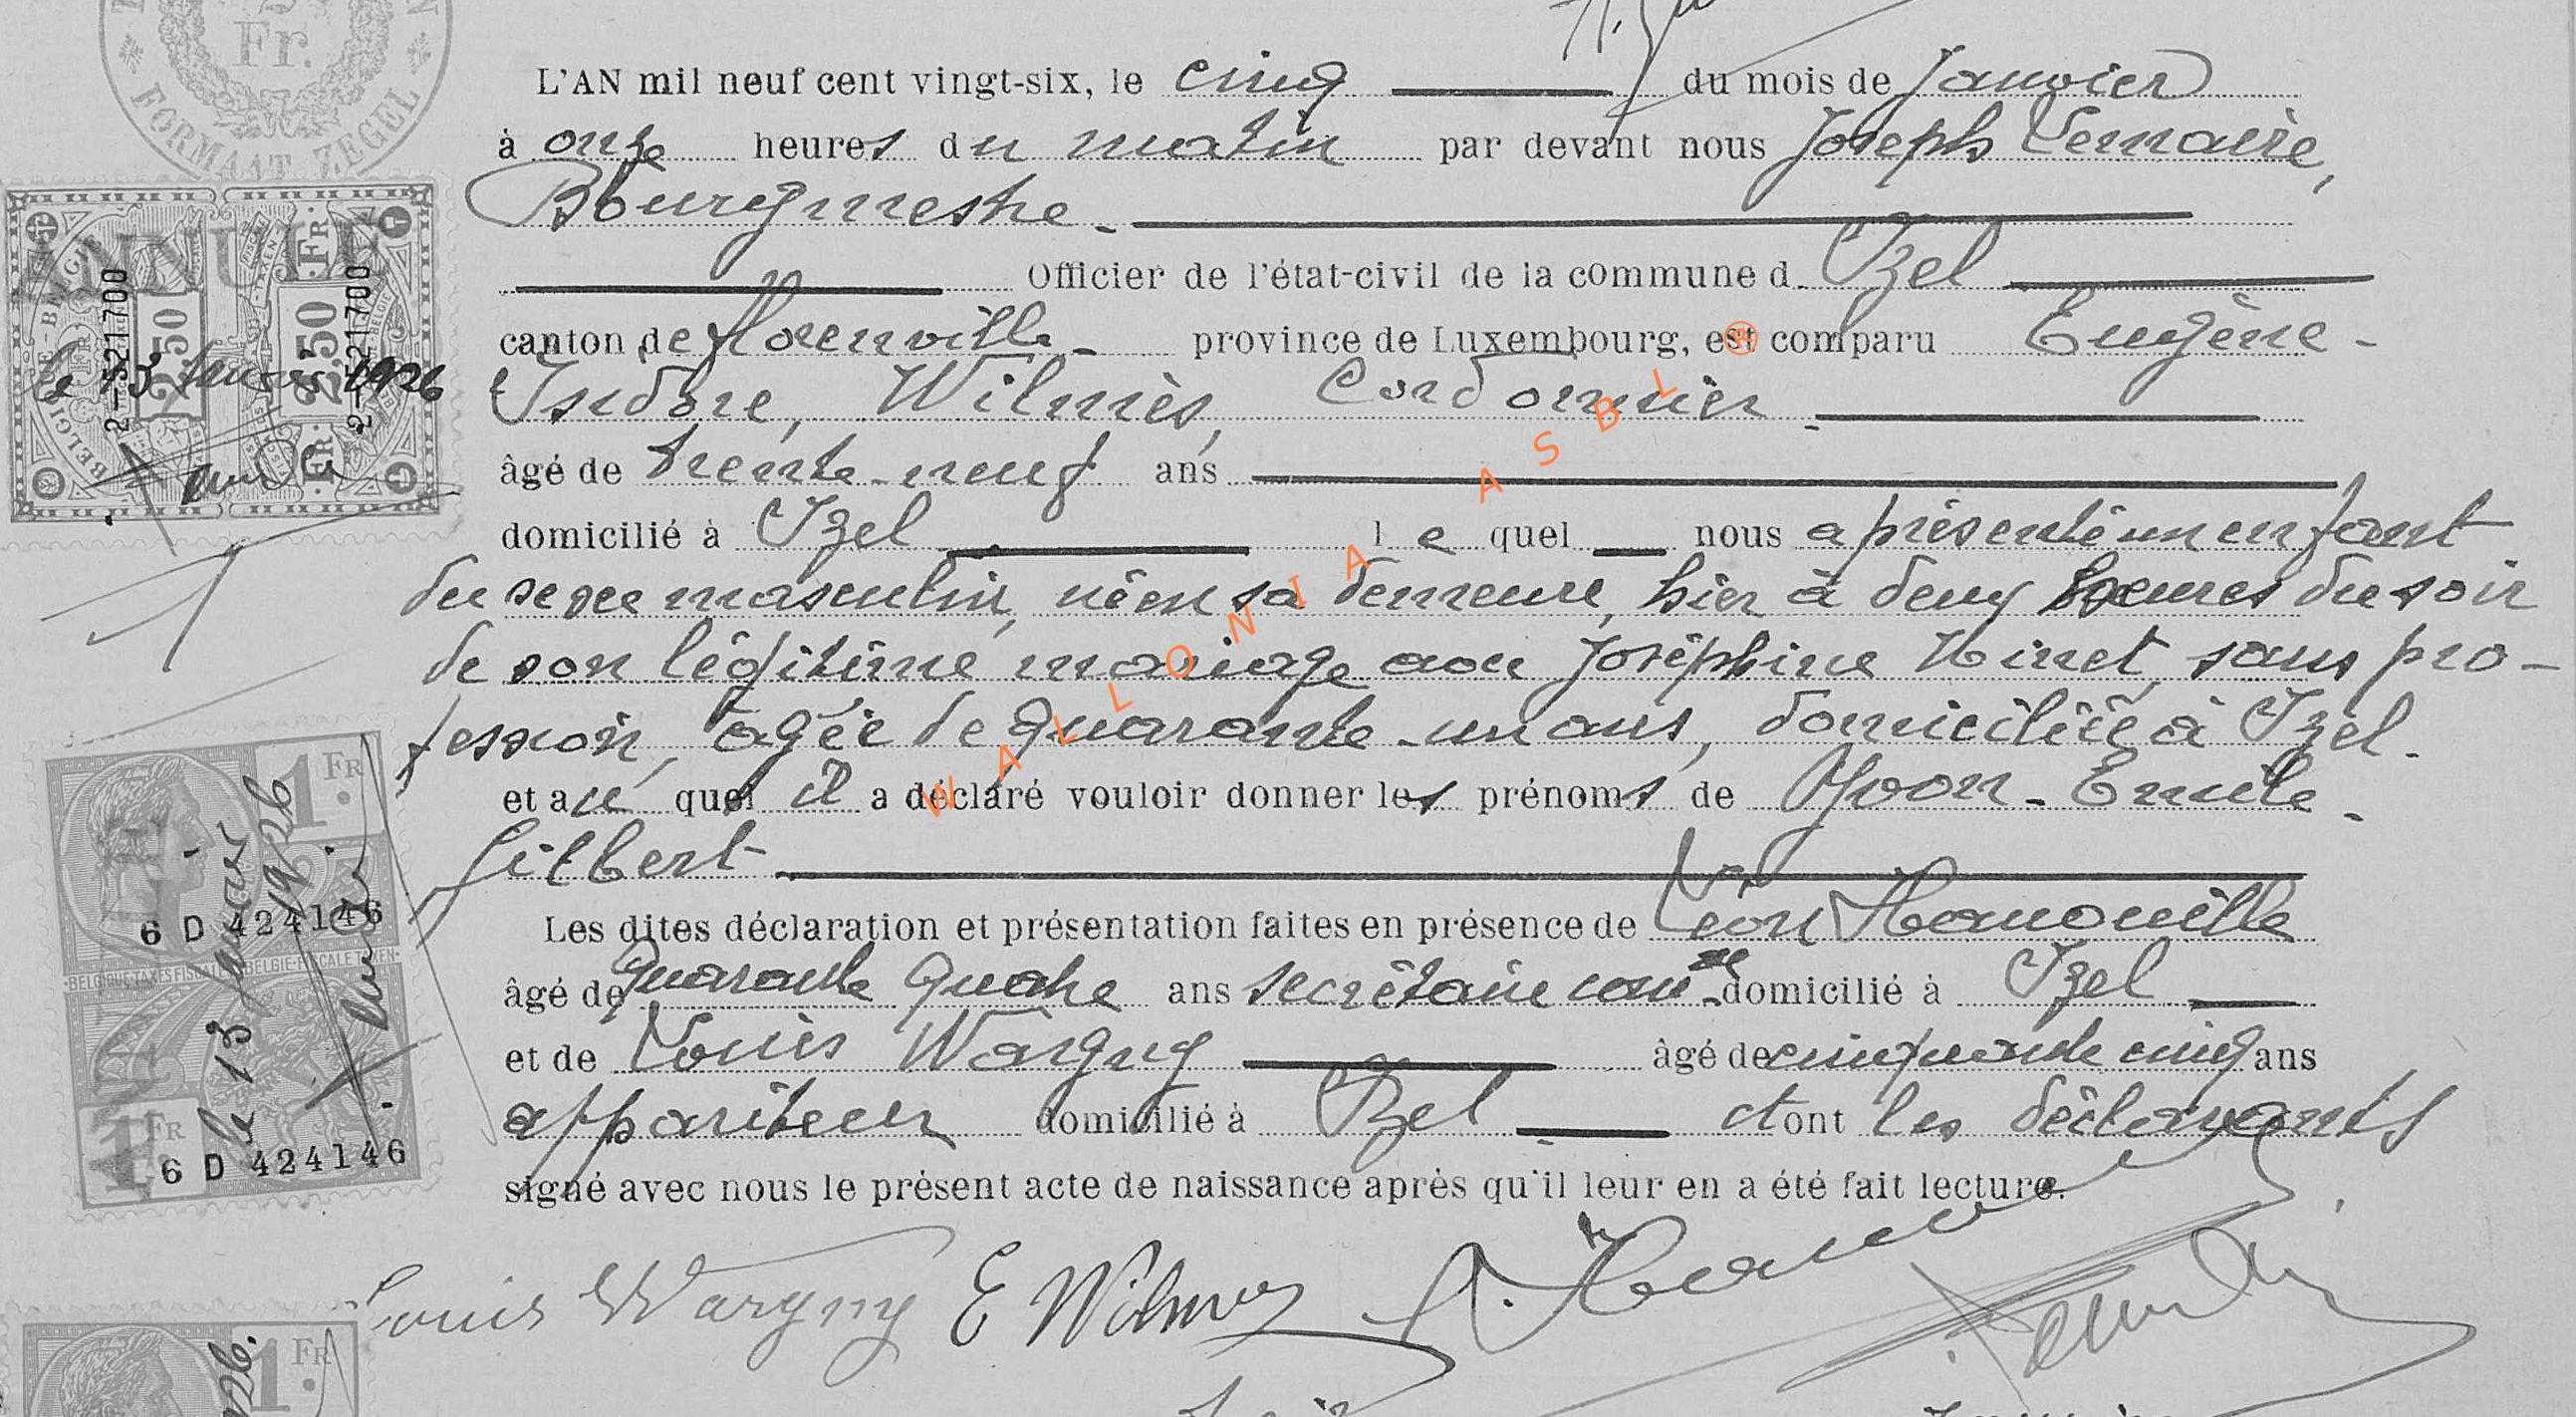 Fr.
FORMAAT ZEGEL
L'AN mil neuf cent vingt-six, le cinq du mois de Janvier
à onze heures du matin par devant nous Joseph Lemaire,
Bourgmestre
Officier de l'état-civil de la commune d Izel
canton de Florenville province de Luxembourg, est comparu Eugène-
Isidore, Wilmès, Cordonnier
âgé de trente-neuf ans
domicilié à Izel lequel nous a présenté un enfant
du sexe masculin, né en sa demeure, hier à deux heures du soir
de son légitime mariage avec Joséphine Hinet, sans pro-
fession, âgée de quarante-un ans, domiciliée à Izel.
et au quel il a déclaré vouloir donner les prénoms de Yvon-Emile-
Gilbert
Les dites déclaration et présentation faites en présence de Léon Hanouille
âgé de quarante quatre ans secrétaire comal domicilié à Izel
et de Louis Wargny âgé de cinquante cinq ans
appariteur domicilié à Izel et ont les déclarants
signé avec nous le présent acte de naissance après qu'il leur en a été fait lecture.
Louis Wargny E Wilmes
ANNULÉ
2-521700
2-521700
2.50
2.50
le 13 janvier 1926
1 FR
6 D 424146
BELGIQUE-TAXES FISCALES BELGIE-FISCALE TAXEN
le 13 janvier 1926
1 FR
6 D 424146
1 FR
WALLONIA ASBL ®